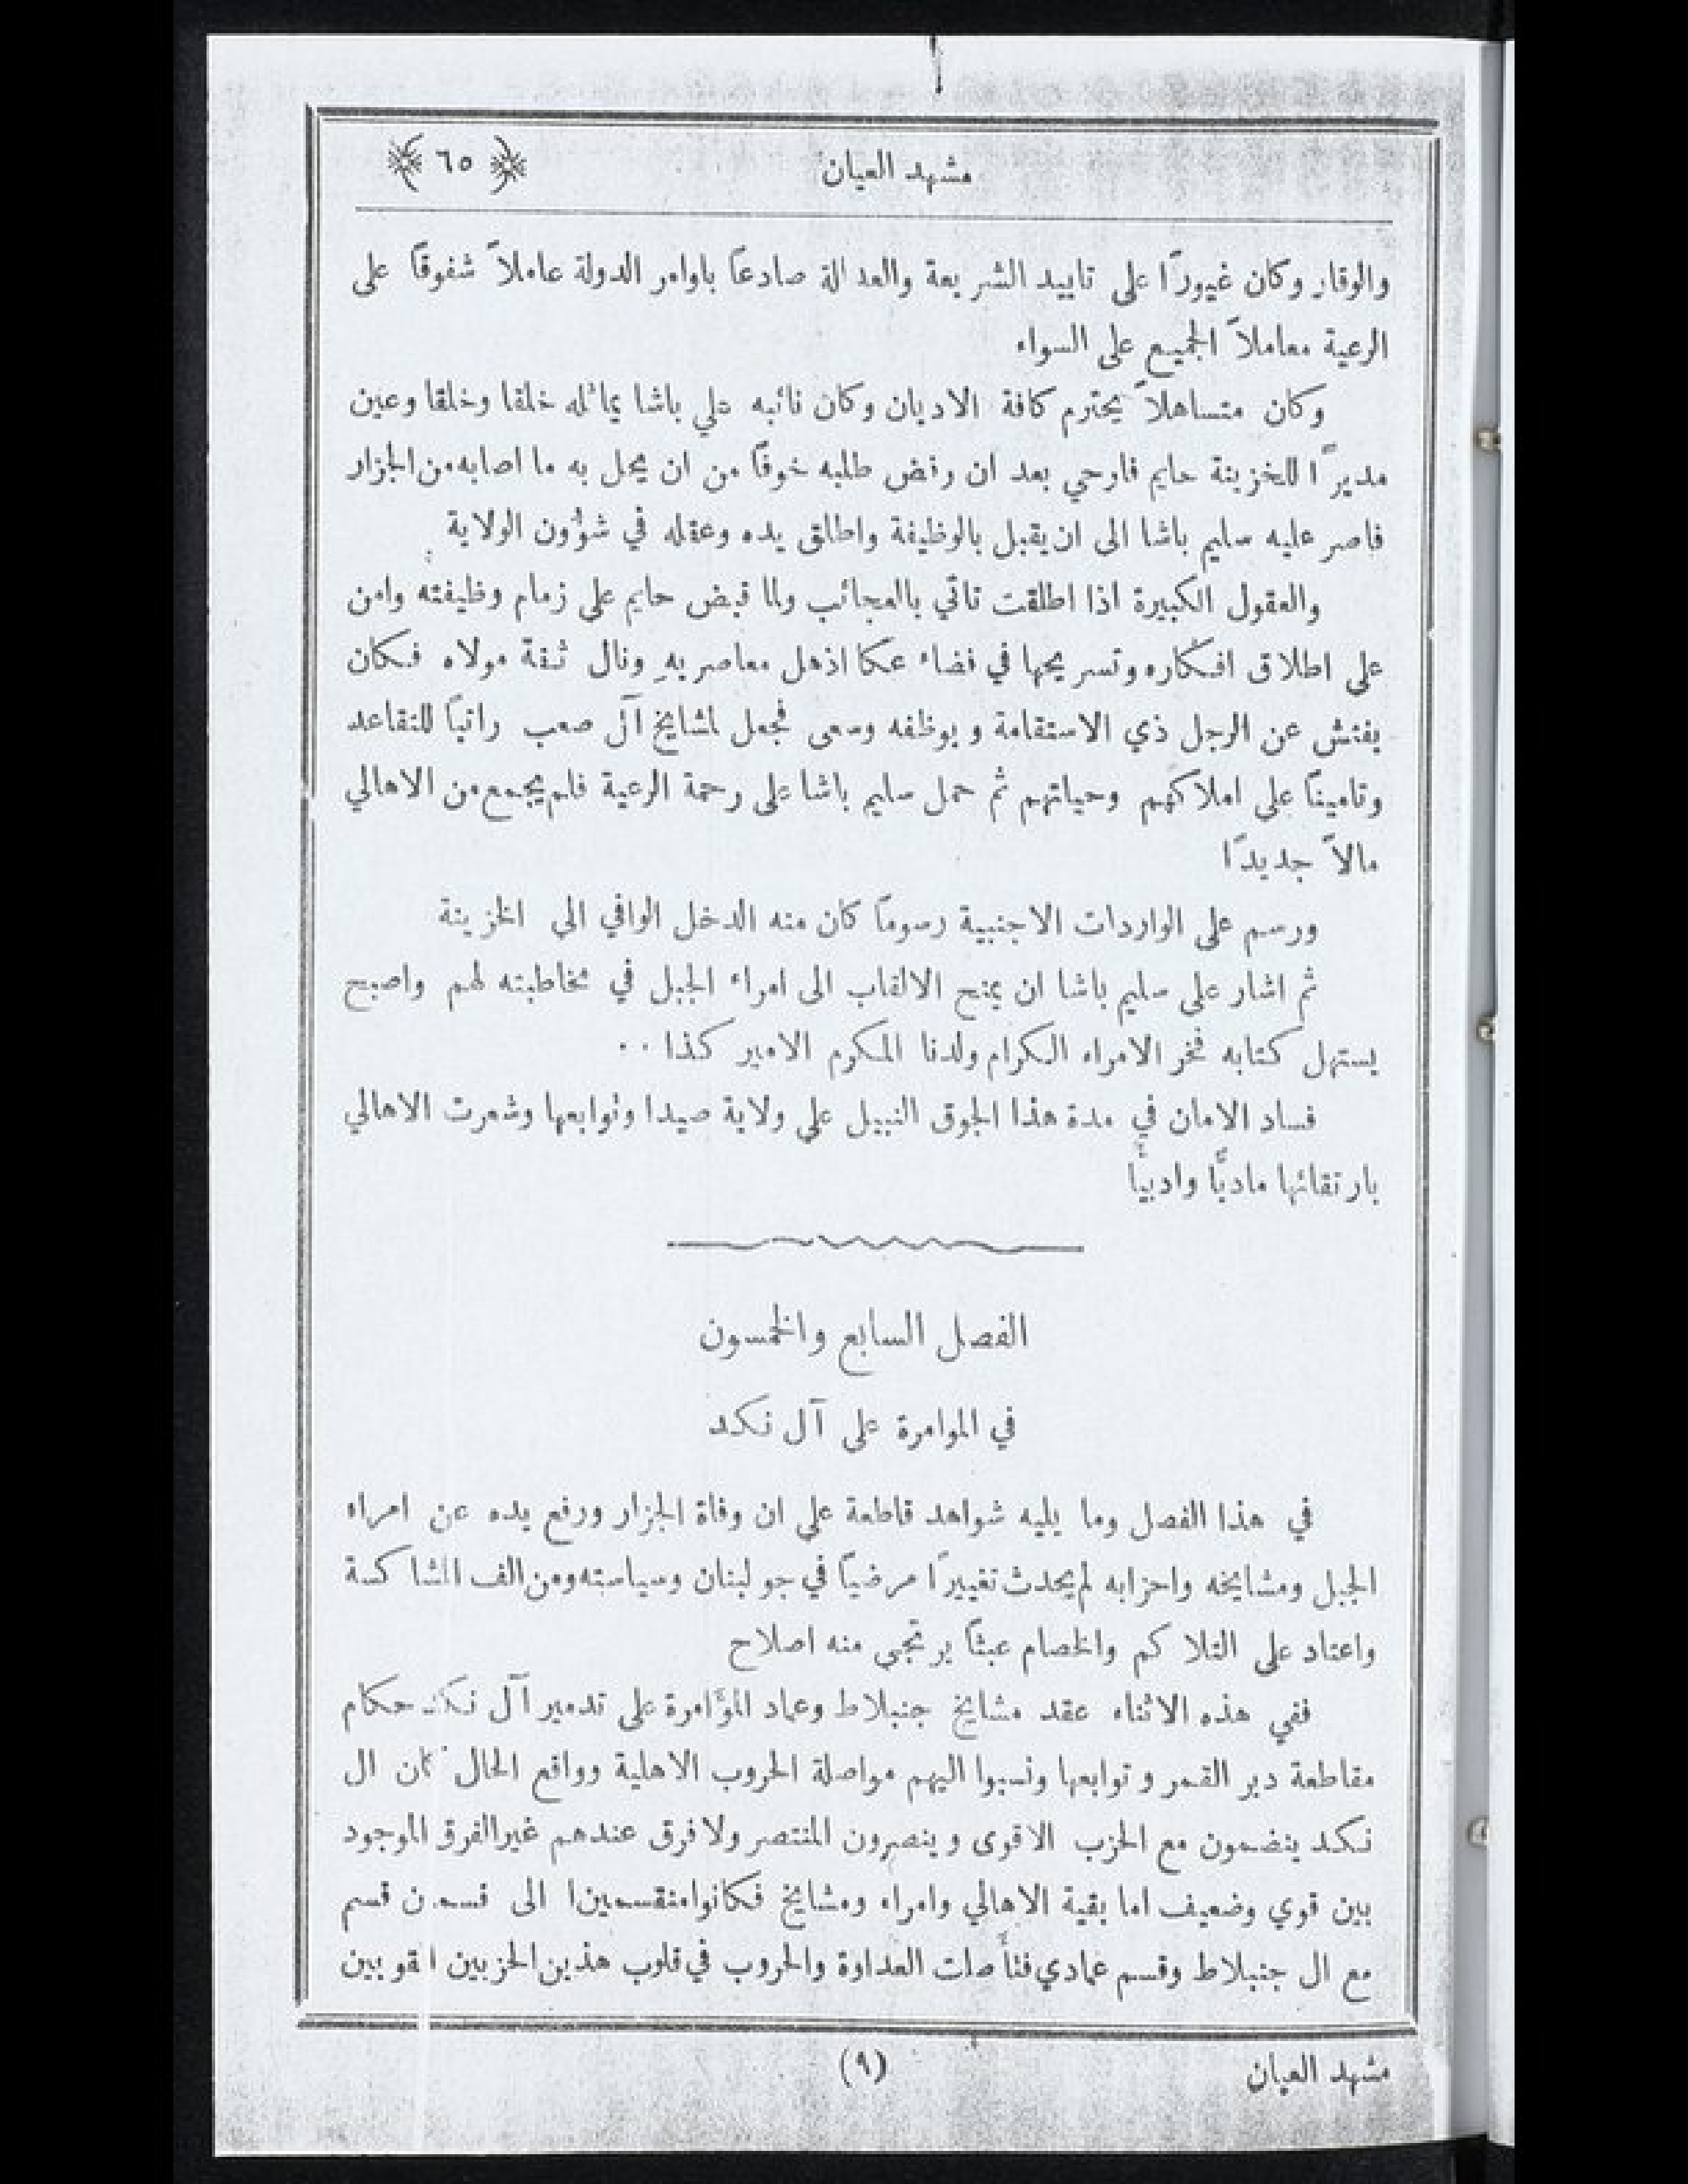 مشهد العيان
٦٥
والوقار وكان غيورًا على تاييد الشريعة والعدالة صادعًا باوامر الدولة عاملاً شفوقًا على
الرعية معاملاً الجميع على السواء
وكان متساهلاً يحترم كافة الاديان وكان نائبه علي باشا يماثله خلقا وخلقا وعين
مديرًا للخزينة حايم فارحي بعد ان رفض طلبه خوفًا من ان يحل به ما اصابه من الجزار
فاصر عليه سليم باشا الى ان يقبل بالوظيفة واطلق يده وعقله في شؤون الولاية
والعقول الكبيرة اذا اطلقت تاتي بالعجائب ولما قبض حايم على زمام وظيفته وامن
على اطلاق افكاره وتسريحها في فضاء عكا اذهل معاصريهِ ونال ثقة مولاه فكان
يفتش عن الرجل ذي الاستقامة ويوظفه وسعى فجعل لمشايخ آل صعب راتبًا للتقاعد
وتامينًا على املاكهم وحياتهم ثم حمل سليم باشا على رحمة الرعية فلم يجمع من الاهالي
مالاً جديدًا
ورسم على الواردات الاجنبية رسومًا كان منه الدخل الوافي الى الخزينة
ثم اشار على سليم باشا ان يمنح الالقاب الى امراء الجبل في مخاطبته لهم واصبح
يستهل كتابه فخر الامراء الكرام ولدنا المكرم الامير كذا ..
فساد الامان في مدة هذا الجوق النبيل على ولاية صيدا وتوابعها وشعرت الاهالي
بارتقائها ماديًّا وادبيًّا
الفصل السابع والخمسون
في الموامرة على آل نكد
في هذا الفصل وما يليه شواهد قاطعة على ان وفاة الجزار ورفع يده عن امراء
الجبل ومشايخه واحزابه لم يحدث تغييرًا مرضيًا في جو لبنان وسياسته ومن الف المشاكسة
واعتاد على التلاكم والخصام عبثًا يرتجى منه اصلاح
ففي هذه الاثناء عقد مشايخ جنبلاط وعماد المؤامرة على تدمير آل نكد حكام
مقاطعة دير القمر وتوابعها ونسبوا اليهم مواصلة الحروب الاهلية وواقع الحال كان ال
نكد ينضمون مع الحزب الاقوى وينصرون المنتصر ولا فرق عندهم غير الفرق الموجود
بين قوي وضعيف اما بقية الاهالي وامراء ومشايخ فكانوا منقسمين الى قسمين قسم
مع ال جنبلاط وقسم عمادي فتأصلت العداوة والحروب في قلوب هذين الحزبين القويين
مشهد العيان
(٩)